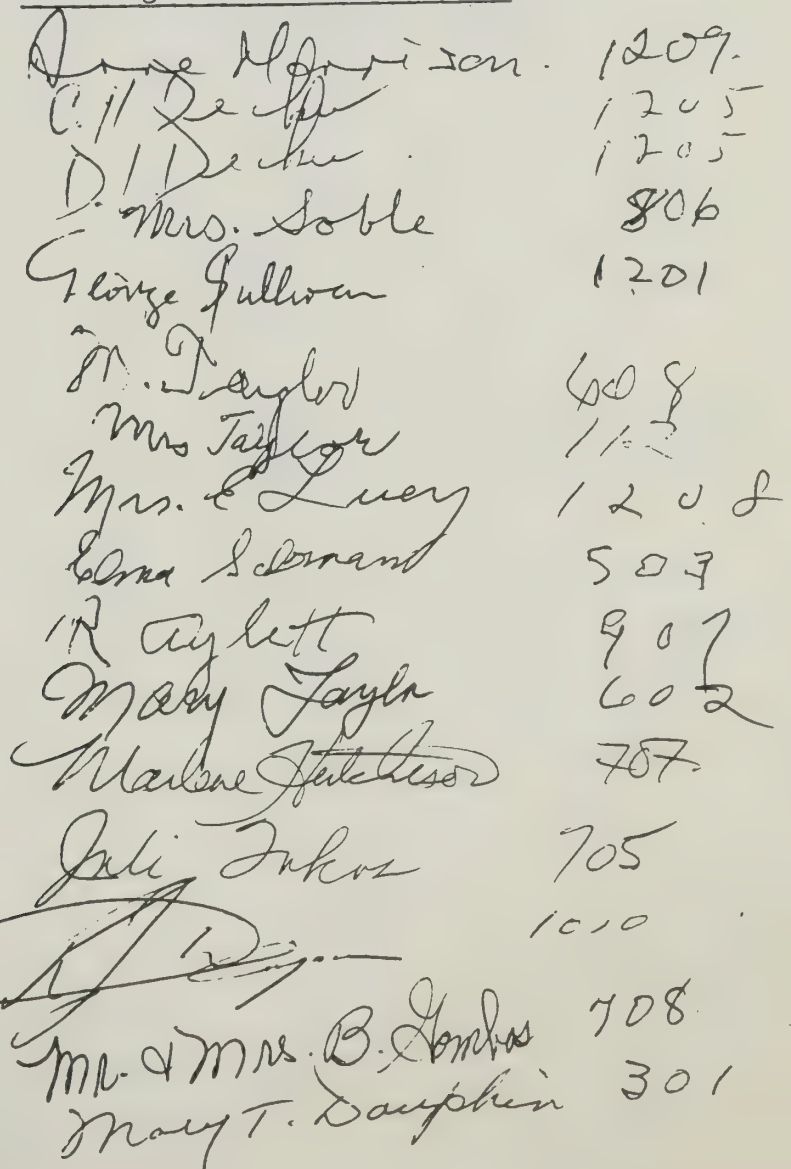 Morrison. 1209.
C. H. Decker 1205
D. Decker 1205
Mrs. Soble 806
George Sullivan 1201
M. Taylor 608
Mrs Taylor
Mrs. E Lucy 1208
Elma 503
R Aylett 907
Mary Taylor 602
Marlene Hutcheson 707
Juli 705
1010
Mr. & Mrs. B. Gombos 708
Mary T. Dauphin 301